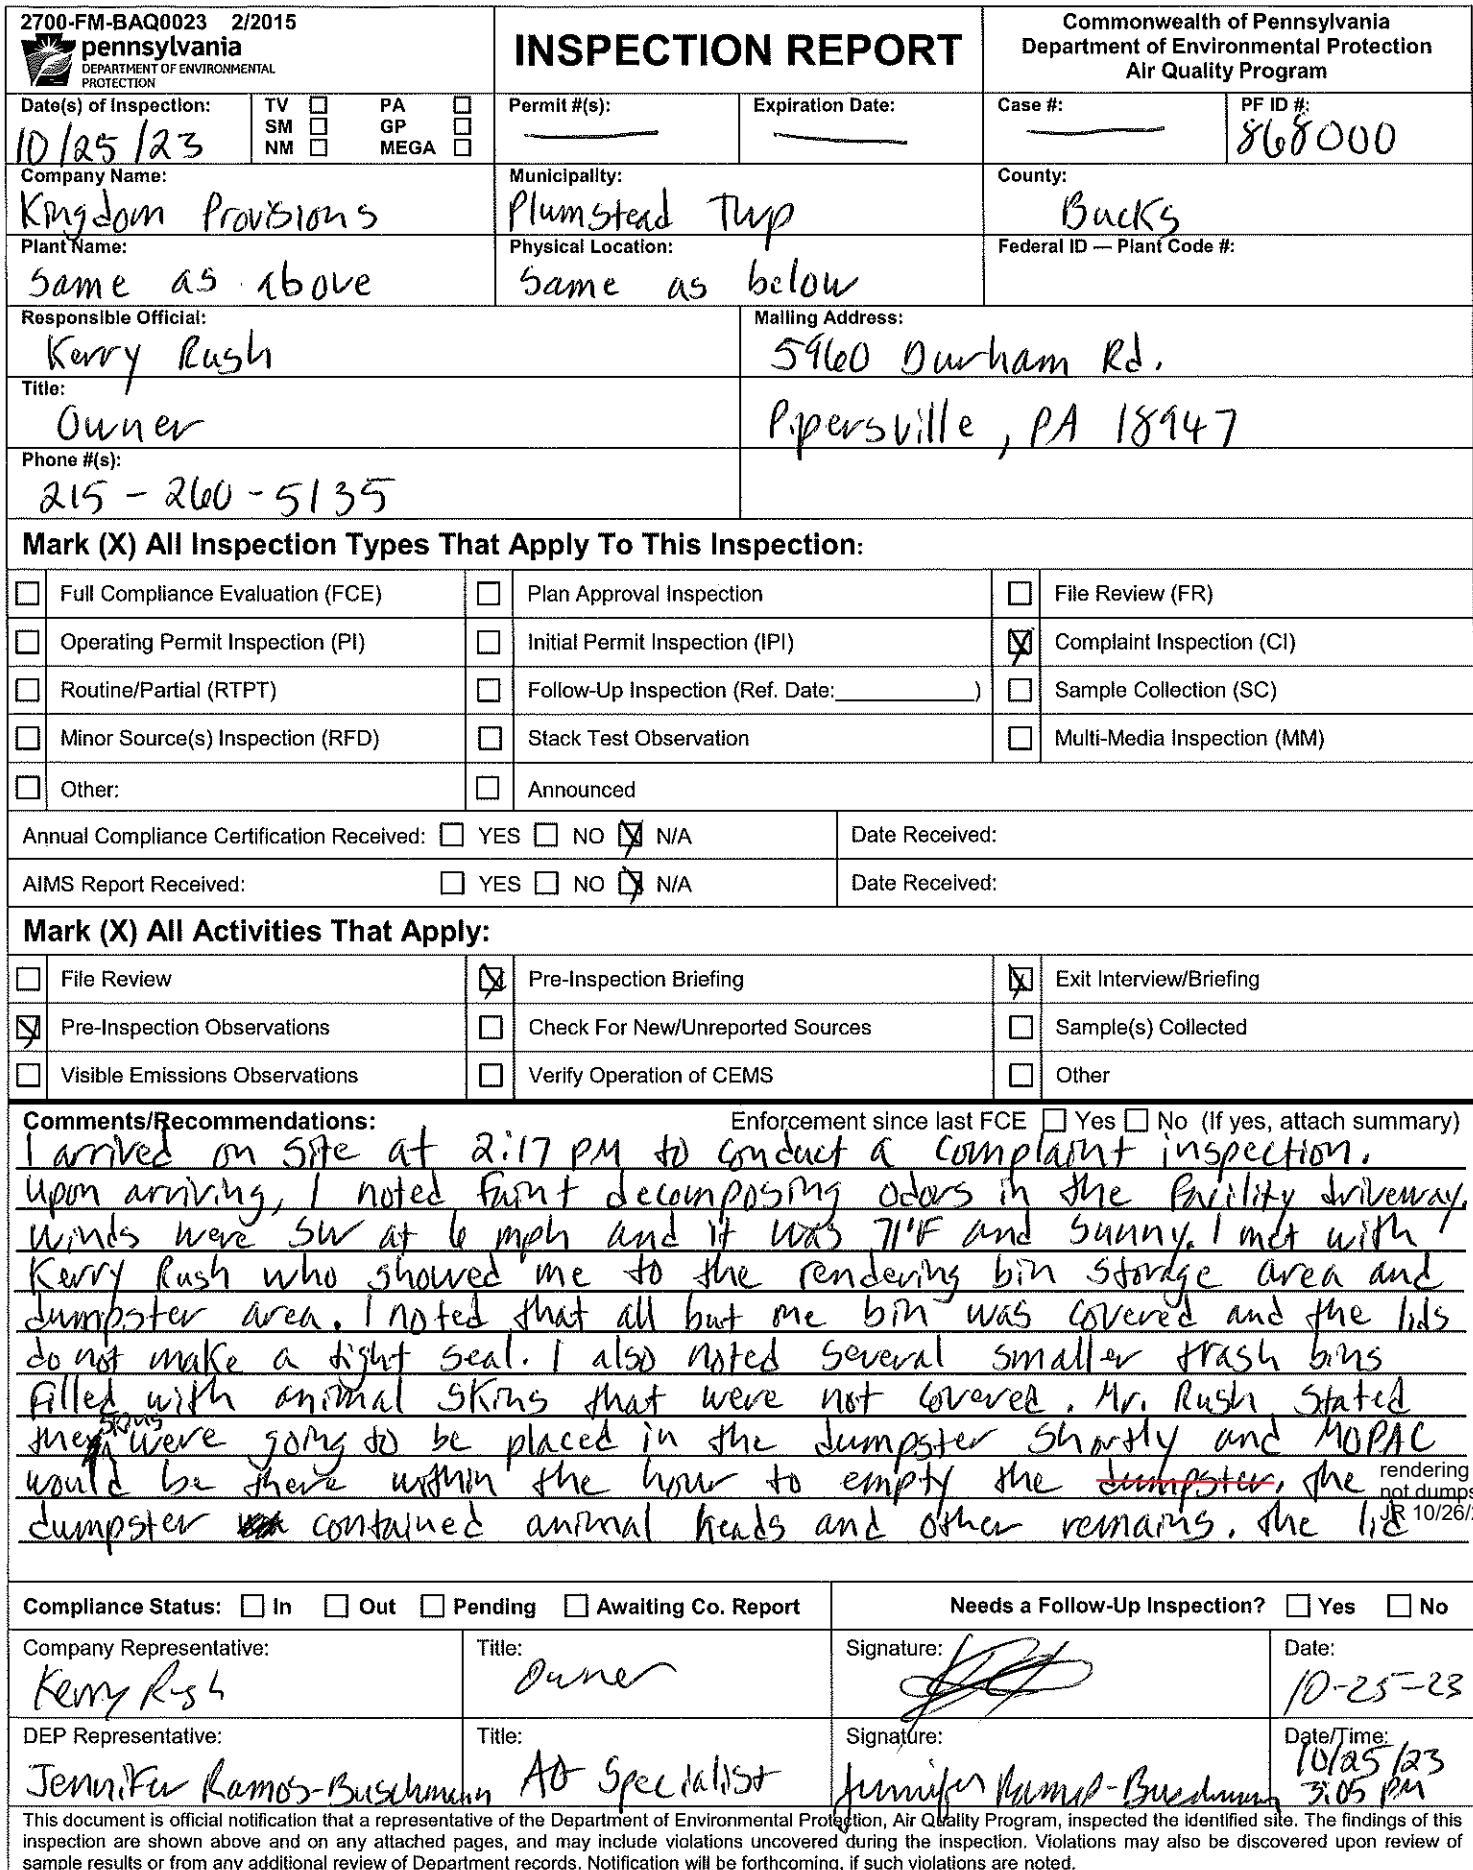 2700-FM-BAQ0023 2/2015
pennsylvania
DEPARTMENT OF ENVIRONMENTAL
PROTECTION
INSPECTION REPORT
Commonwealth of Pennsylvania
Department of Environmental Protection
Air Quality Program
Date(s) of Inspection:
10/25/23
TV ☐ PA ☐
SM ☐ GP ☐
NM ☐ MEGA ☐
Permit #(s):
Expiration Date:
Case #:
PF ID #:
868000
Company Name:
Kingdom Provisions
Municipality:
Plumstead Twp
County:
Bucks
Plant Name:
Same as above
Physical Location:
Same as below
Federal ID — Plant Code #:
Responsible Official:
Kerry Rush
Mailing Address:
5960 Durham Rd.
Title:
Owner
Pipersville, PA 18947
Phone #(s):
215-260-5135
Mark (X) All Inspection Types That Apply To This Inspection:
☐ Full Compliance Evaluation (FCE) ☐ Plan Approval Inspection ☐ File Review (FR)
☐ Operating Permit Inspection (PI) ☐ Initial Permit Inspection (IPI) ☒ Complaint Inspection (CI)
☐ Routine/Partial (RTPT) ☐ Follow-Up Inspection (Ref. Date:____________) ☐ Sample Collection (SC)
☐ Minor Source(s) Inspection (RFD) ☐ Stack Test Observation ☐ Multi-Media Inspection (MM)
☐ Other: ☐ Announced
Annual Compliance Certification Received: ☐ YES ☐ NO ☒ N/A Date Received:
AIMS Report Received: ☐ YES ☐ NO ☒ N/A Date Received:
Mark (X) All Activities That Apply:
☐ File Review ☒ Pre-Inspection Briefing ☒ Exit Interview/Briefing
☒ Pre-Inspection Observations ☐ Check For New/Unreported Sources ☐ Sample(s) Collected
☐ Visible Emissions Observations ☐ Verify Operation of CEMS ☐ Other
Comments/Recommendations: Enforcement since last FCE ☐ Yes ☐ No (If yes, attach summary)
I arrived on site at 2:17 PM to conduct a complaint inspection.
Upon arriving, I noted faint decomposing odors in the facility driveway.
Winds were SW at 6 mph and it was 71°F and sunny. I met with
Kerry Rush who showed me to the rendering bin storage area and
dumpster area. I noted that all but one bin was covered and the lids
do not make a tight seal. I also noted several smaller trash bins
filled with animal skins that were not covered. Mr. Rush stated
the skins were going to be placed in the dumpster shortly and MOPAC
would be there within the hour to empty the dumpster. The
rendering
not dumps
JR 10/26/2
dumpster contained animal heads and other remains. The lid
Compliance Status: ☐ In ☐ Out ☐ Pending ☐ Awaiting Co. Report Needs a Follow-Up Inspection? ☐ Yes ☐ No
Company Representative:
Kerry Rush
Title:
Owner
Signature:
Date:
10-25-23
DEP Representative:
Jennifer Ramos-Buschmann
Title:
AQ Specialist
Signature:
Jennifer Ramos-Buschmann
Date/Time:
10/25/23
3:05 PM
This document is official notification that a representative of the Department of Environmental Protection, Air Quality Program, inspected the identified site. The findings of this
inspection are shown above and on any attached pages, and may include violations uncovered during the inspection. Violations may also be discovered upon review of
sample results or from any additional review of Department records. Notification will be forthcoming, if such violations are noted.